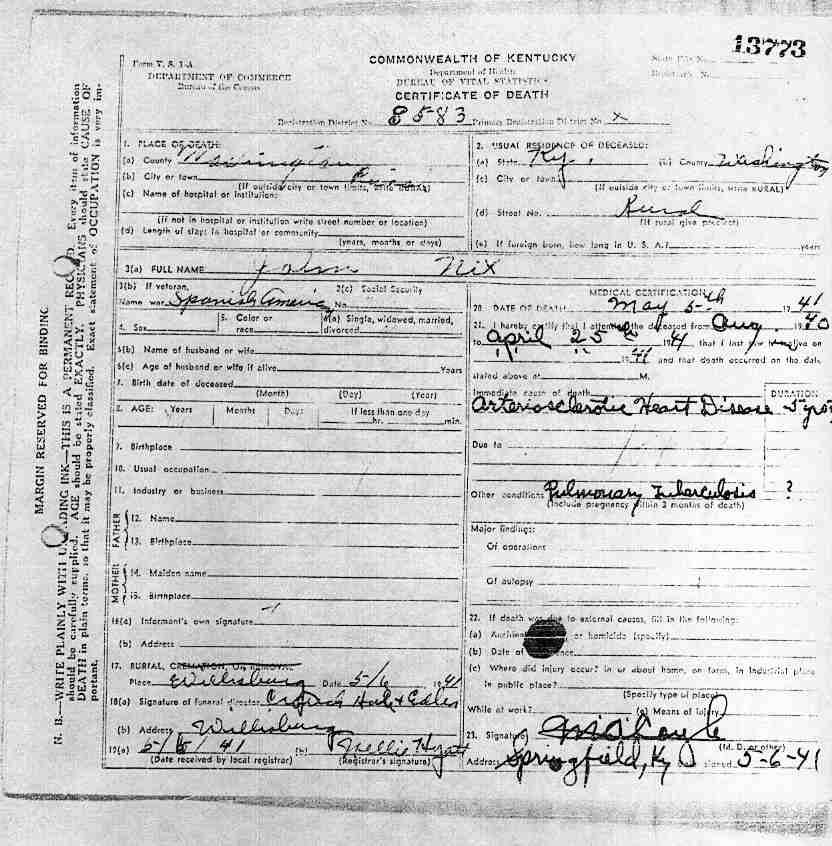 13773
Form V. S. 1-A
DEPARTMENT OF COMMERCE
Bureau of the Census
COMMONWEALTH OF KENTUCKY
Department of Health
BUREAU OF VITAL STATISTICS
CERTIFICATE OF DEATH
State File No.
Registrar's No.
Registration District No. 8583 Primary Registration District No. x
MARGIN RESERVED FOR BINDING
N. B.—WRITE PLAINLY WITH UNFADING INK—THIS IS A PERMANENT RECORD. Every item of information
should be carefully supplied. AGE should be stated EXACTLY. PHYSICIANS should state CAUSE OF
DEATH in plain terms, so that it may be properly classified. Exact statement of OCCUPATION is very im-
portant.
1. PLACE OF DEATH:
(a) County Washington
(b) City or town Rural
(If outside city or town limits, write RURAL)
(c) Name of hospital or institution:
(If not in hospital or institution write street number or location)
(d) Length of stay: In hospital or community
(years, months or days)
2. USUAL RESIDENCE OF DECEASED:
(a) State Ky. (b) County Washington
(c) City or town
(If outside city or town limits, write RURAL)
(d) Street No. Rural
(If rural give precinct)
(e) If foreign born, how long in U. S. A.? years
3(a) FULL NAME John Nix
3(b) If veteran, 3(c) Social Security
Name war Spanish America No.
4. Sex 5. Color or race 6(a) Single, widowed, married, divorced
6(b) Name of husband or wife
6(c) Age of husband or wife if alive Years
7. Birth date of deceased
(Month) (Day) (Year)
8. AGE: Years Months Days If less than one day
hr. min.
9. Birthplace
10. Usual occupation
11. Industry or business
FATHER
12. Name
13. Birthplace
MOTHER
14. Maiden name
15. Birthplace
16(a) Informant's own signature
(b) Address
17. BURIAL, CREMATION, OR REMOVAL
Place Willisburg Date 5/6 1941
18(a) Signature of funeral director Hale &
(b) Address Willisburg
19(a) 5/5/41 (b) Nellie Hyatt
(Date received by local registrar) (Registrar's signature)
MEDICAL CERTIFICATION
20. DATE OF DEATH May 5th 1941
21. I hereby certify that I attended the deceased from Aug. 1940
to April 25 1941, that I last saw alive on
" " 1941 and that death occurred on the date
stated above at M.
Immediate cause of death DURATION
Arteriosclerotic Heart Disease 5 yrs
Due to
Other conditions Pulmonary Tuberculosis ?
(Include pregnancy within 3 months of death)
Major findings:
Of operations
Of autopsy
22. If death was due to external causes, fill in the following:
(a) Accident or homicide (specify)
(b) Date of
(c) Where did injury occur? In or about home, on farm, in industrial place
in public place?
(Specify type of place)
While at work? (e) Means of injury
23. Signature
(M. D. or other)
Address Springfield, Ky signed 5-6-41